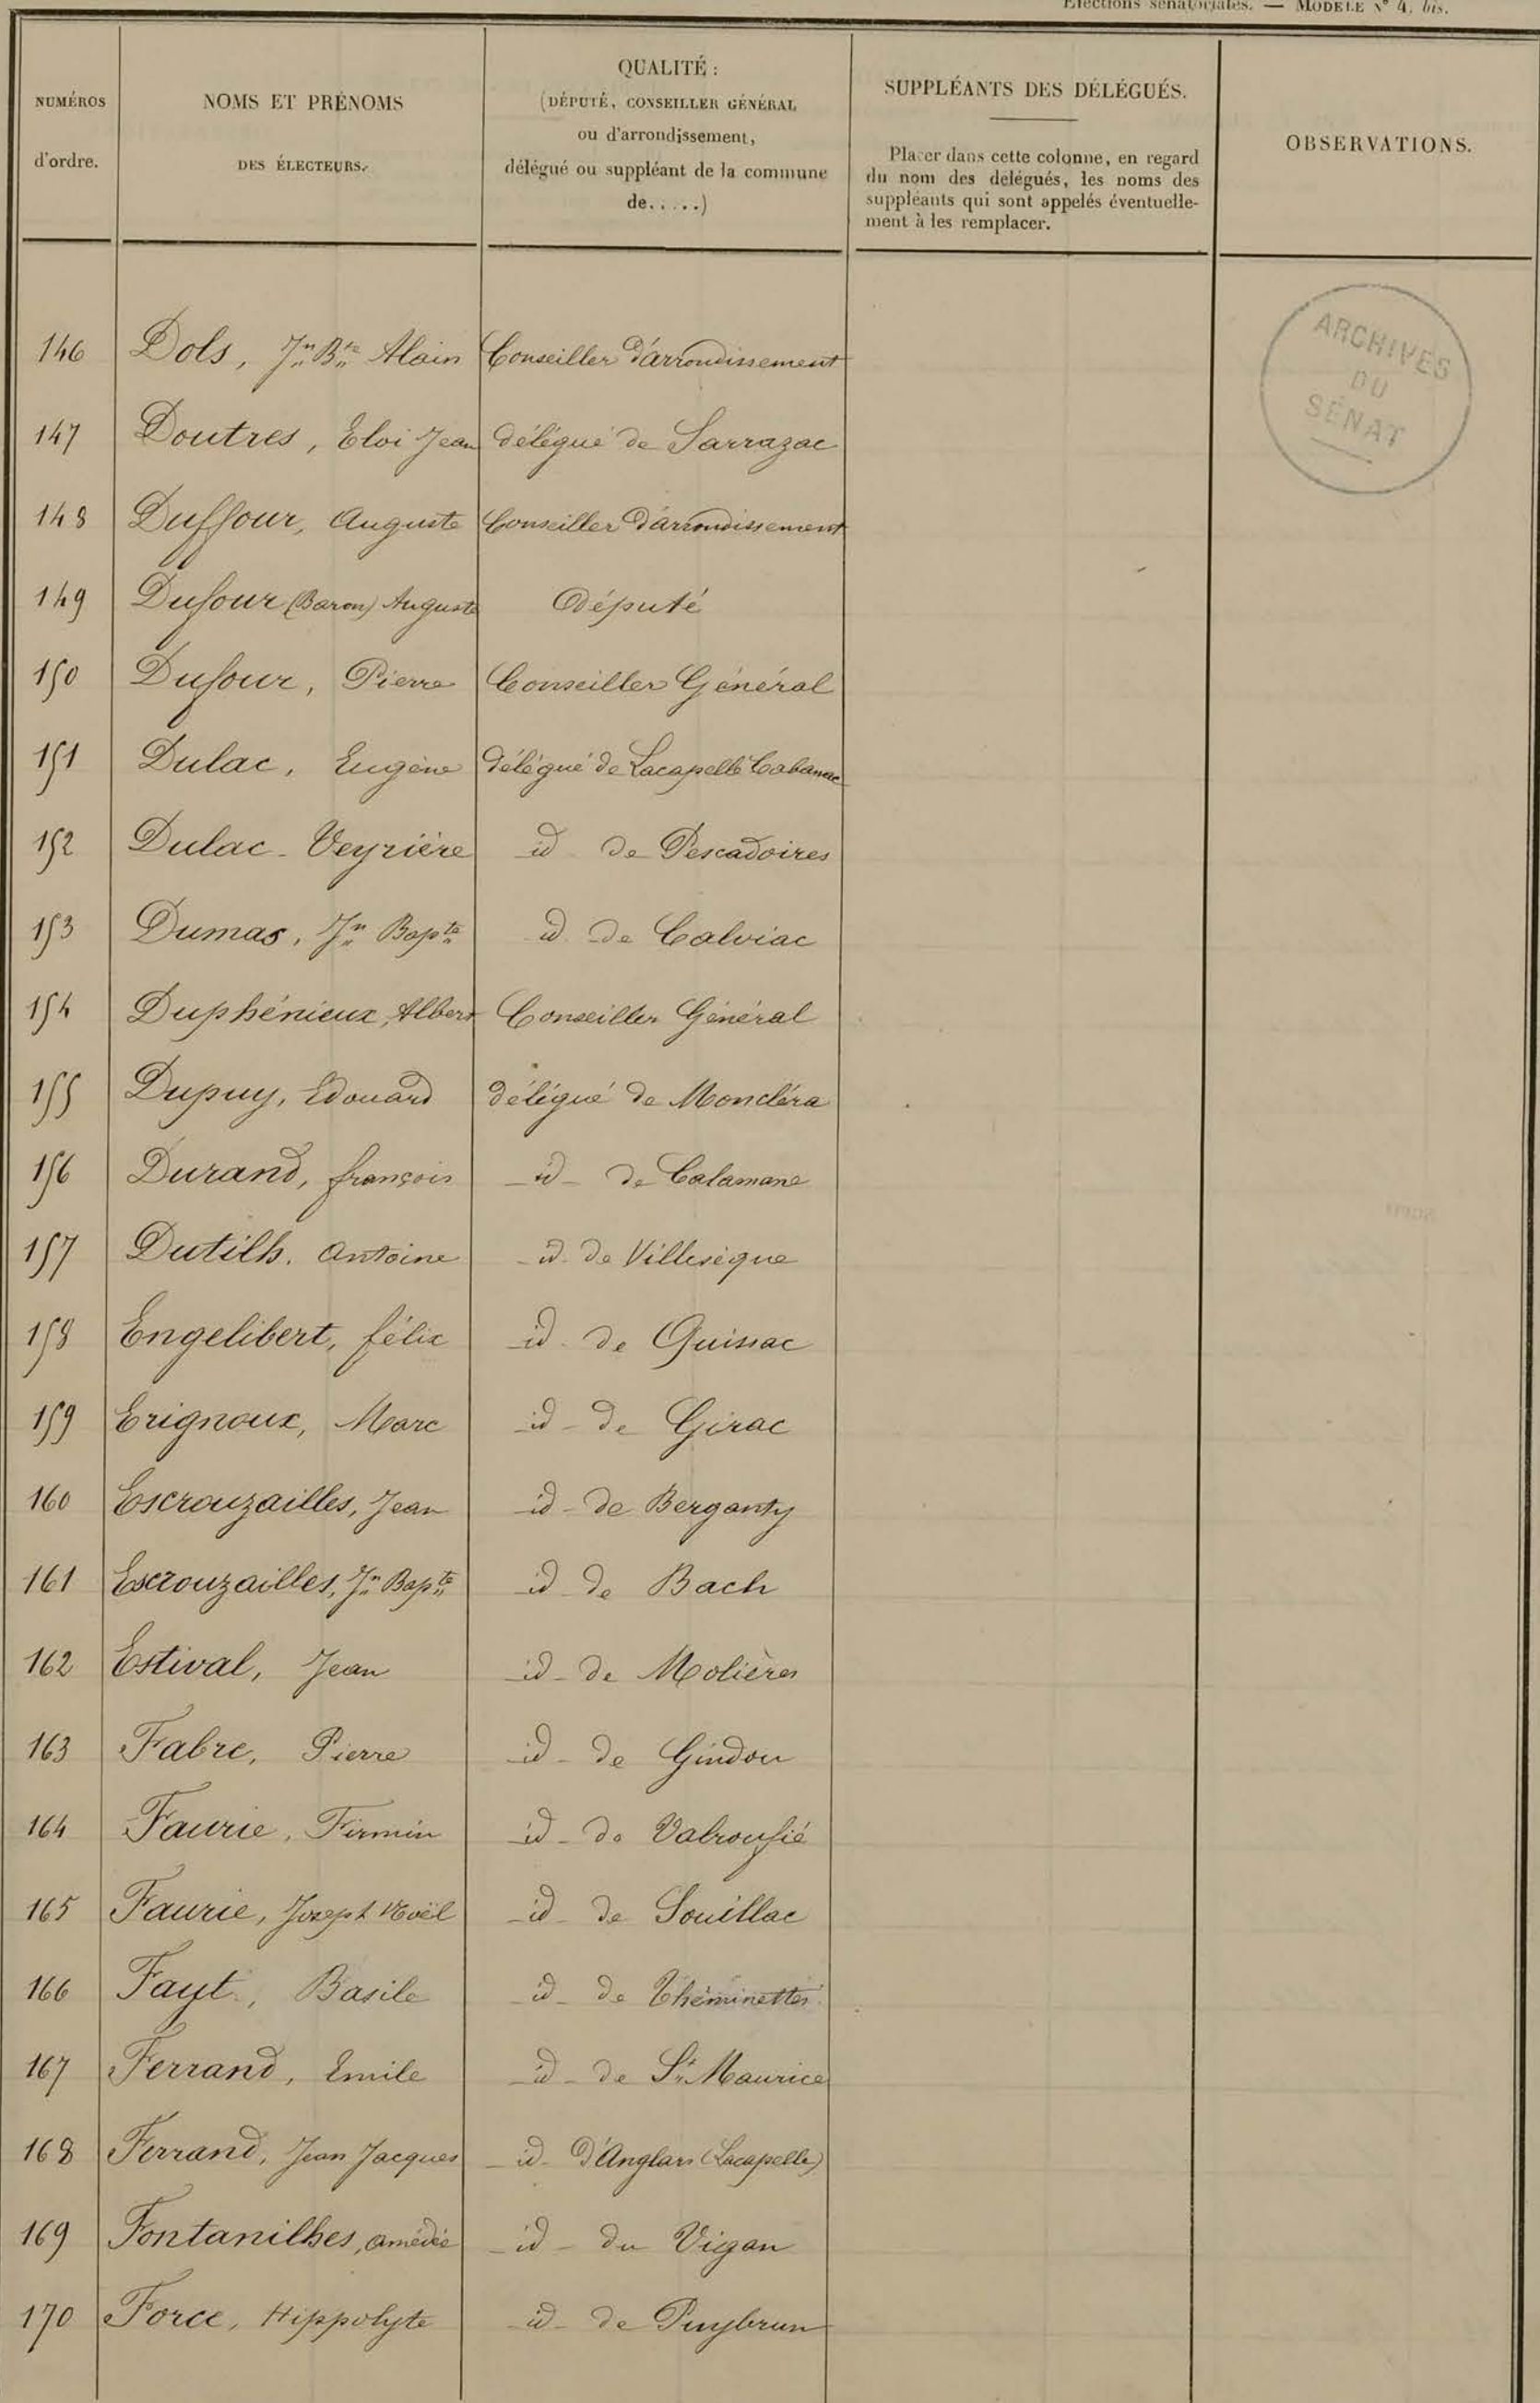 Elections sénatoriales. — MODELE N° 4. bis.
NUMÉROS d'ordre.
NOMS ET PRÉNOMS
DES ÉLECTEURS.
QUALITÉ :
(DÉPUTÉ, CONSEILLER GÉNÉRAL
ou d'arrondissement,
délégué ou suppléant de la commune
de.....)
SUPPLÉANTS DES DÉLÉGUÉS.
Placer dans cette colonne, en regard
du nom des délégués, les noms des
suppléants qui sont appelés éventuelle-
ment à les remplacer.
OBSERVATIONS.
ARCHIVES
DU
SÉNAT
146 Dols, Jn Bte Alain Conseiller d'arrondissement
147 Doutres, Eloi Jean délégué de Sarrazac
148 Duffour, Auguste Conseiller d'arrondissement
149 Dufour (Baron) Auguste Député
150 Dufour, Pierre Conseiller Général
151 Dulac, Eugène délégué de Lacapelle Cabanac
152 Dulac-Veyrière id de Pescadoires
153 Dumas, Jn Bapte id de Calviac
154 Duphénieux, Albert Conseiller Général
155 Dupuy, Edouard délégué de Moncléra
156 Durand, françois -id- de Calamane
157 Dutilh. Antoine -id- de Villesèque
158 Engelibert, félix -id- de Quissac
159 Erignoux, Marc -id- de Girac
160 Escrouzailles, Jean -id- de Berganty
161 Escrouzailles, Jn Bapte -id- de Bach
162 Estival, Jean -id- de Molières
163 Fabre, Pierre -id- de Gindou
164 Faurie, Firmin -id- de Valroufié
165 Faurie, Joseph Noël -id- de Souillac
166 Fayt, Basile -id- de Théminettes
167 Ferrand, Emile -id- de St Maurice
168 Ferrand, Jean Jacques -id- d'Anglars (Lacapelle)
169 Fontanilhes, amédée -id- du Vigan
170 Force, Hippolyte -id- de Puybrun